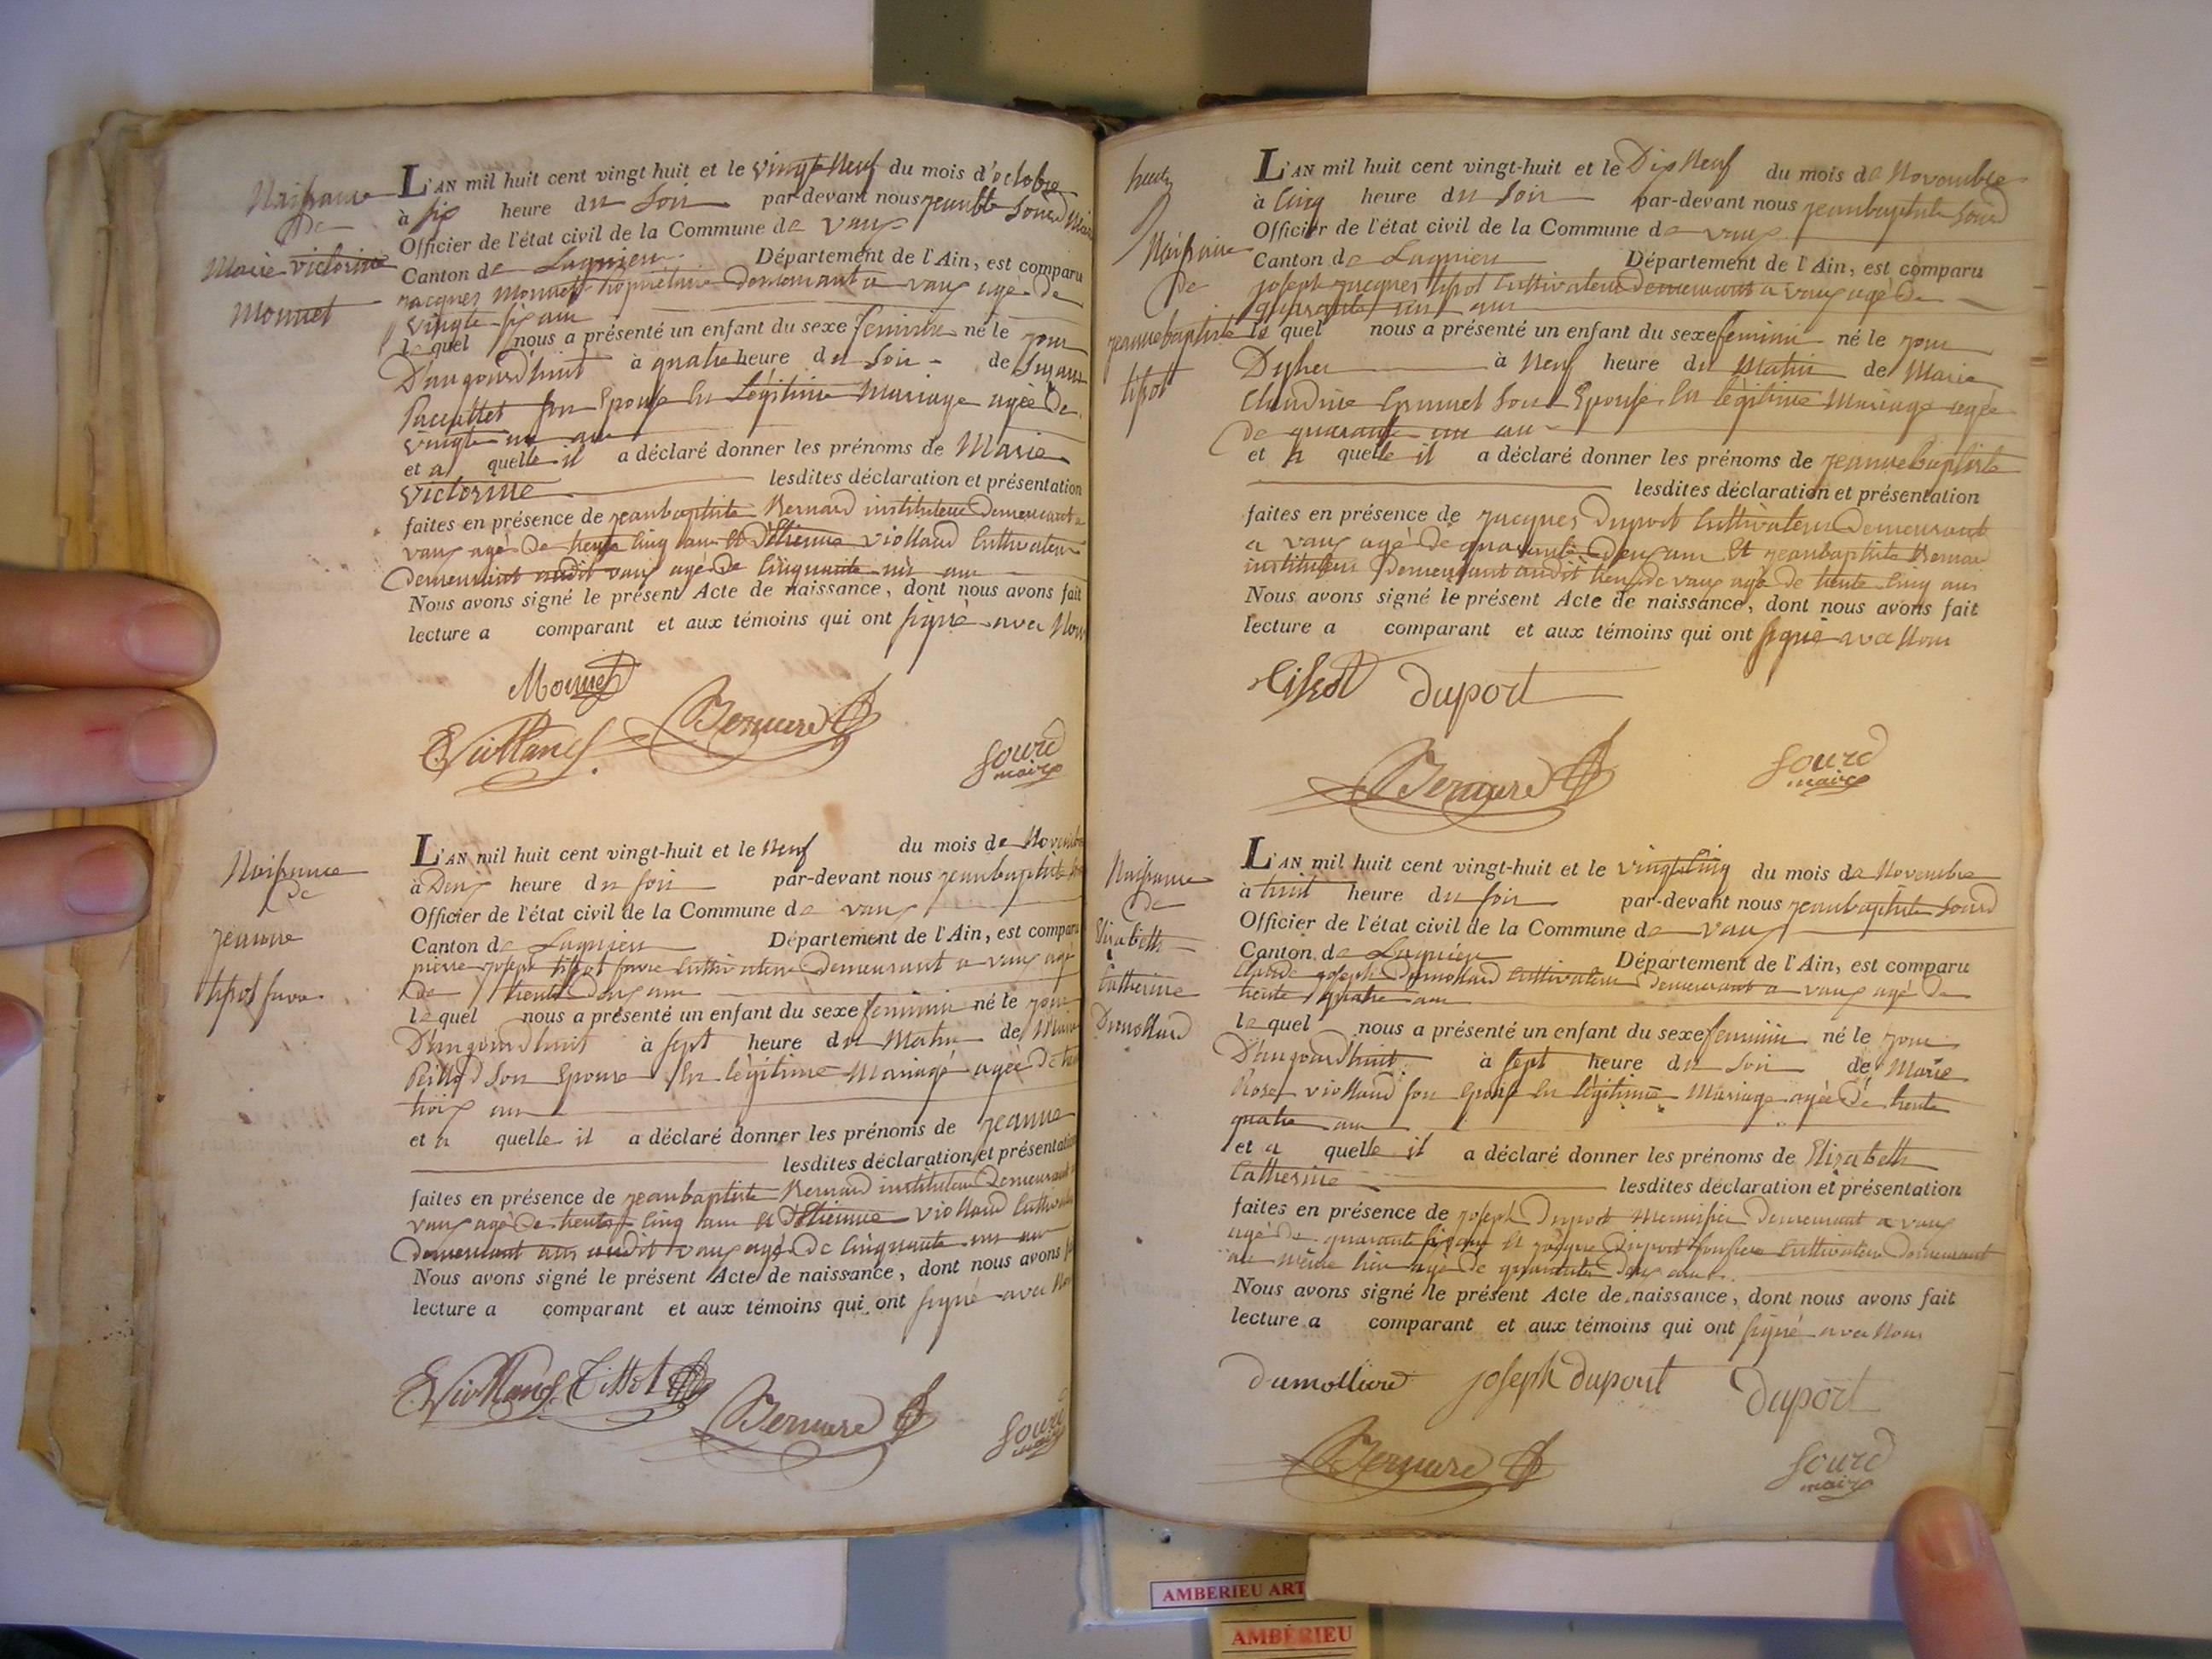 Naissance
de
Marie victorine
Monnet
L'AN mil huit cent vingt-huit et le vingt Neuf du mois d'octobre
à six heure du Soir par-devant nous jeanbte Sourd Maire
Officier de l'état civil de la Commune de vaux
Canton de Lagnieu Département de l'Ain, est comparu
jacques Monnet propriétaire Demeurant a vaux agé de
vingt six ans
le quel nous a présenté un enfant du sexe feminin né le jour
D'aujourd'huit à quatre heure du Soir de
son Epouse En Légitime Mariage agée De
vingt un ans
et a quelle il a déclaré donner les prénoms de Marie
Victorine lesdites déclaration et présentation
faites en présence de jeanbaptiste Bernard instituteur Demeurant a
vaux agé De trente Cinq ans Et D'Etienne violland Cultivateur
Demeurant audit vaux agé De Cinquante un ans
Nous avons signé le présent Acte de naissance, dont nous avons fait
lecture a comparant et aux témoins qui ont signé avec Nous
Monnet
EViolland Bernard
Sourd
maire
Naissance
de
jeanne
tissot favre
L'AN mil huit cent vingt-huit et le Neuf du mois de Novembre
à Deux heure du soir par-devant nous jeanbaptiste
Officier de l'état civil de la Commune de vaux
Canton de Lagnieu Département de l'Ain, est comparu
pierre joseph tissot favre Cultivateur Demeurant a vaux agé
De trente Deux ans
le quel nous a présenté un enfant du sexe feminin né le jour
D'aujourd'huit à sept heure du Matin de Marie
Peillod Son Epouse En légitime Mariage agée De
trois ans
et a quelle il a déclaré donner les prénoms de jeanne
lesdites déclaration et présentation
faites en présence de jeanbaptiste Bernard instituteur Demeurant
vaux agé De trente Cinq ans Et D'Etienne violland
Demeurant audit vaux agé De Cinquante un ans
Nous avons signé le présent Acte de naissance, dont nous avons
lecture a comparant et aux témoins qui ont signé avec
EViolland Tissot
Bernard
Sourd
maire
Naissance
de
jeannebaptiste
tissot
L'AN mil huit cent vingt-huit et le Dix Neuf du mois de Novembre
à Cinq heure du Soir par-devant nous jeanbaptiste Sourd
Officier de l'état civil de la Commune de vaux
Canton de Lagnieu Département de l'Ain, est comparu
joseph jacques tissot Cultivateur Demeurant a vaux agé De
quarante un ans
le quel nous a présenté un enfant du sexe feminin né le jour
Dyher à Neuf heure du Matin de Marie
Claudine Son Epouse En légitime Mariage agée
De quarante un ans
et a quelle il a déclaré donner les prénoms de jeannebaptiste
lesdites déclaration et présentation
faites en présence de jacques Duport Cultivateur Demeurant
a vaux agé De quarante Deux ans Et jeanbaptiste Bernard
instituteur Demeurant audit lieu de vaux agé De trente Cinq ans
Nous avons signé le présent Acte de naissance, dont nous avons fait
lecture a comparant et aux témoins qui ont signé avec Nous
tissot duport
Bernard
Sourd
maire
Naissance
De
Elizabeth
Catherine
Dumollard
L'AN mil huit cent vingt-huit et le vingt Cinq du mois de Novembre
à huit heure du soir par-devant nous jeanbaptiste Sourd
Officier de l'état civil de la Commune de vaux
Canton de Lagnieu Département de l'Ain, est comparu
Claude joseph Dumollard Cultivateur Demeurant a vaux agé De
trente quatre ans
le quel nous a présenté un enfant du sexe feminin né le jour
D'aujourd'huit à sept heure du Soir de Marie
Rose viollaud son Epouse En légitime Mariage agée De trente
quatre ans
et a quelle il a déclaré donner les prénoms de Elizabeth
Catherine lesdites déclaration et présentation
faites en présence de joseph Duport Menuisier Demeurant a vaux
agé De quarante six ans Et jacque Duport Cultivateur Demeurant
au même lieu agé De quarante Deux ans
Nous avons signé le présent Acte de naissance, dont nous avons fait
lecture a comparant et aux témoins qui ont signé avec Nous
dumollard joseph duport duport
Bernard
Sourd
maire
AMBERIEU ART
AMBÉRIEU